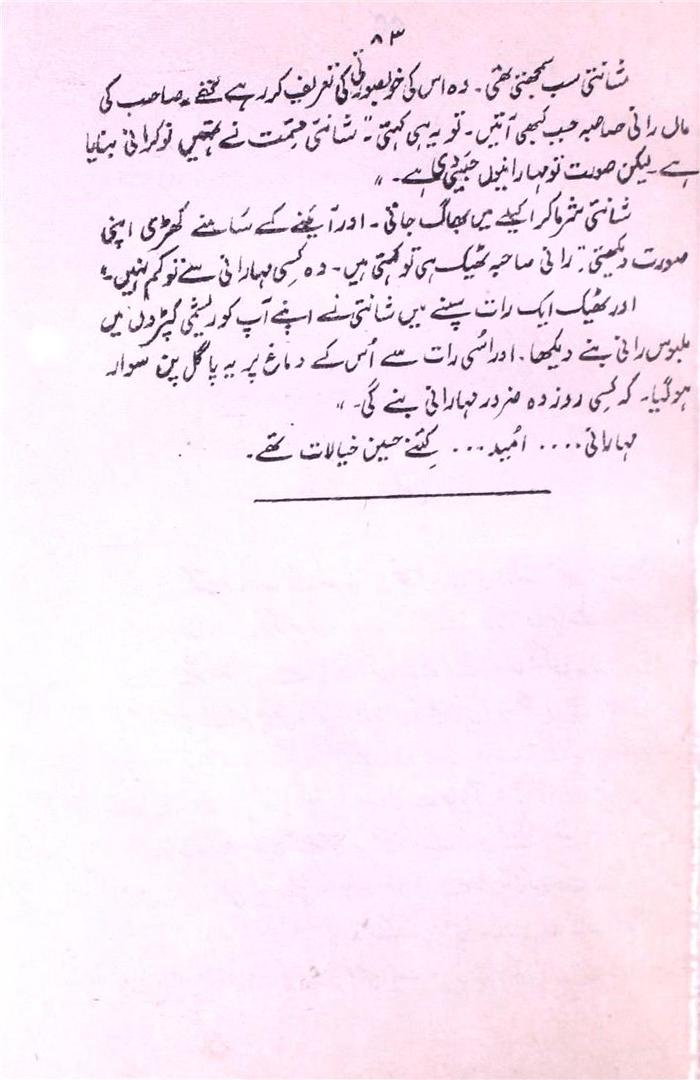 ۸۳
شانتی سب سمجھتی تھی۔ وہ اس کی خوبصورتی کی تعریف کر رہے تھے۔ صاحب کی
ماں رانی صاحبہ جب کبھی آتیں۔ تو یہ ہی کہتی "شانتی قسمت نے تمھیں نوکرانی بنایا
ہے۔ لیکن صورت تو مہارانیوں جیسی دی ہے۔"
شانتی شرما کر اکیلے میں بھاگ جاتی۔ اور آئینے کے سامنے کھڑی اپنی
صورت دیکھتی "رانی صاحبہ ٹھیک ہی تو کہتی ہیں۔ وہ کسی مہارانی سے تو کم نہیں۔"
اور ٹھیک ایک رات سپنے میں شانتی نے اپنے آپ کو ریشمی کپڑوں میں
ملبوس رانی بنے دیکھا۔ اور اسُی رات سے اُس کے دماغ پر یہ پاگل پن سوار
ہو گیا۔ کہ کسِی روز وہ ضرور مہارانی بنے گی۔"
مہارانی.... امُید... کِتنے حسین خیالات تھے۔